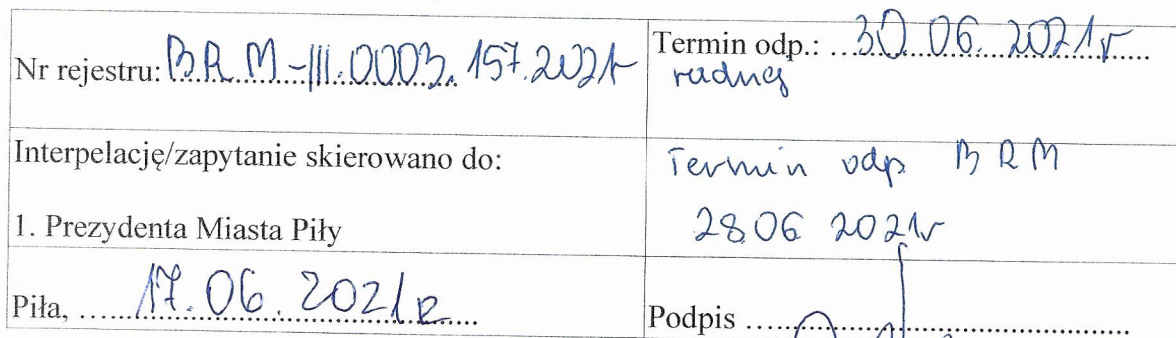 Nr rejestru: BRM-III.0003.157.2021r
Termin odp.: 30.06.2021r
radnej
Interpelację/zapytanie skierowano do:
1. Prezydenta Miasta Piły
Termin odp BRM
28.06 2021r
Piła, 17.06.2021r
Podpis